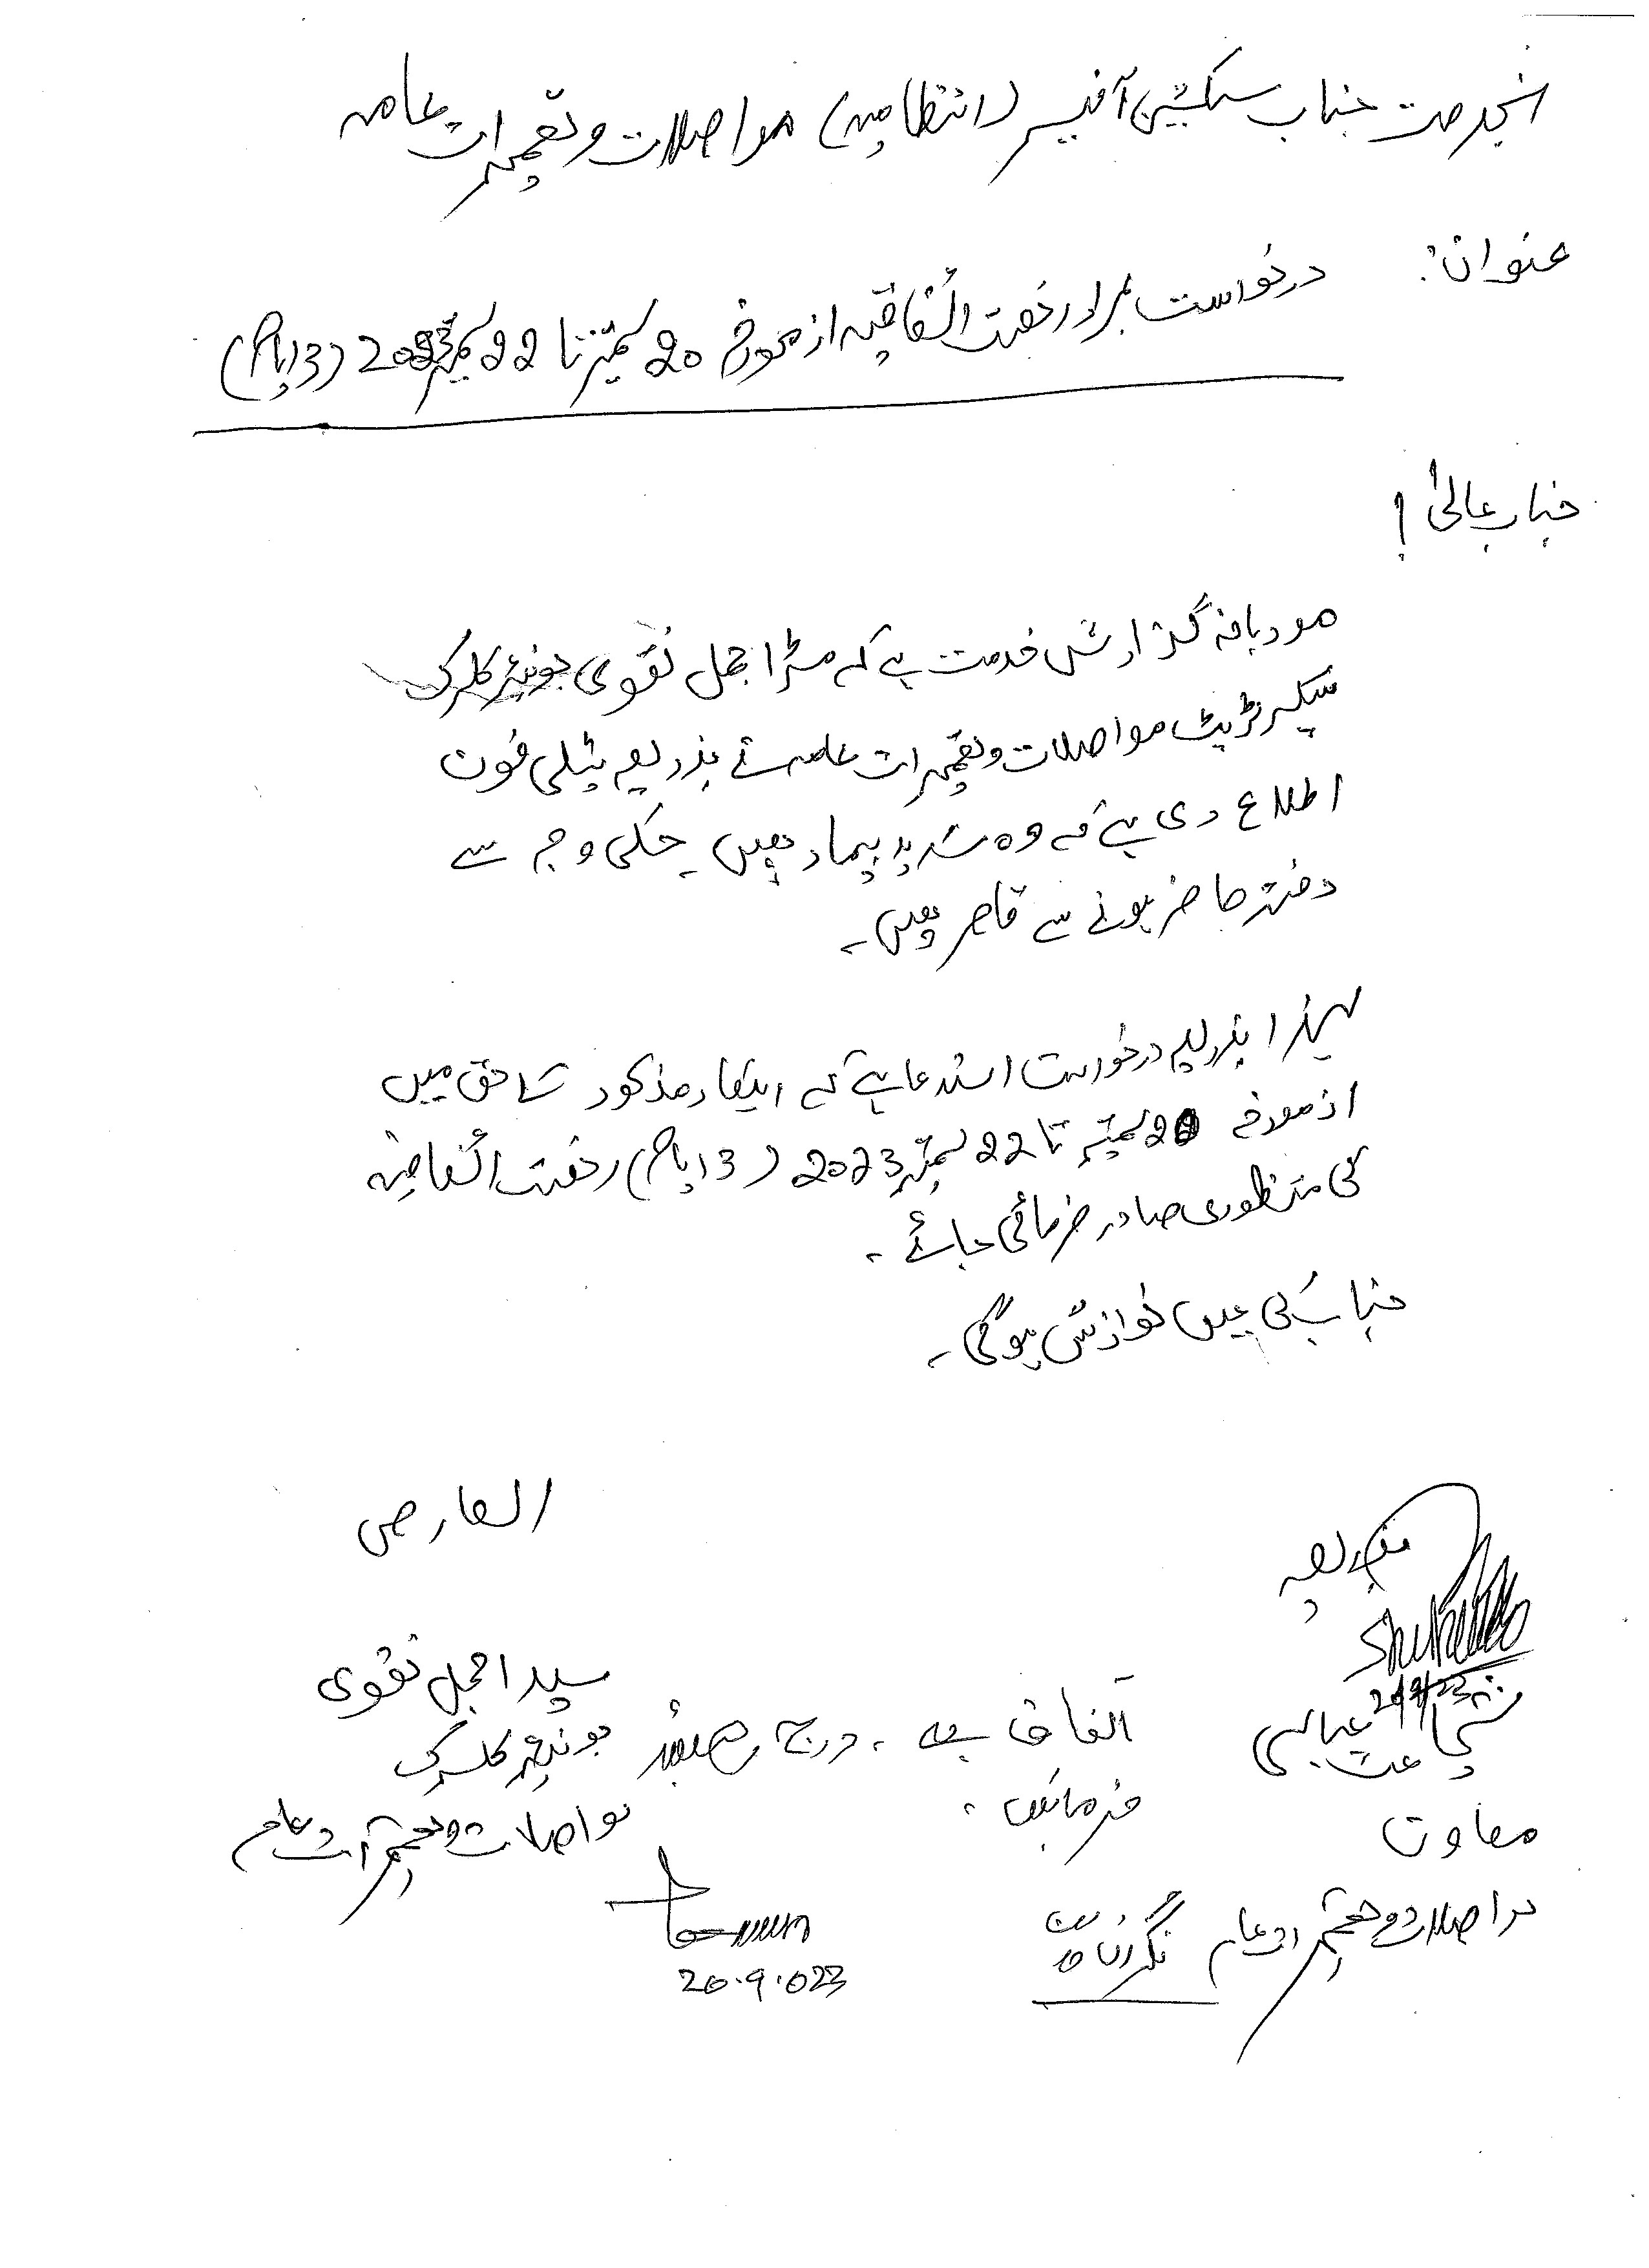 بخدمت جناب سیکشن آفیسر (انتظامیہ) مواصلات و تعمیرات عامہ
عنوان: درخواست بمراد رخصت اتفاقیہ از مورخہ 20 ستمبر تا 22 ستمبر 2023 (3 ایام)
جناب عالیٰ!
مودبانہ گزارش خدمت ہے کہ مسٹر اجمل نقوی جونیئر کلرک
سیکرٹریٹ مواصلات و تعمیرات عامہ نے بذریعہ ٹیلی فون
اطلاع دی ہے کہ وہ شدید بیمار ہیں۔ جسکی وجہ سے
دفتر حاضر ہونے سے قاصر ہیں۔
لہذا بذریعہ درخواست استدعا ہے کہ اہلکار مذکور کے حق میں
از مورخہ 20 ستمبر تا 22 ستمبر 2023 (3 ایام) رخصت اتفاقیہ
کی منظوری صادر فرمائی جائے۔
جناب کی عین نوازش ہوگی۔
العارض
بذریعہ
سید اجمل نقوی
20/9/23
شجاعت عباسی
اتفاق ہے۔ درج رجسٹر
جونیئر کلرک
فرمائیں۔
معاون
مواصلات و تعمیرات عامہ
مواصلات و تعمیرات عامہ
20.9.023